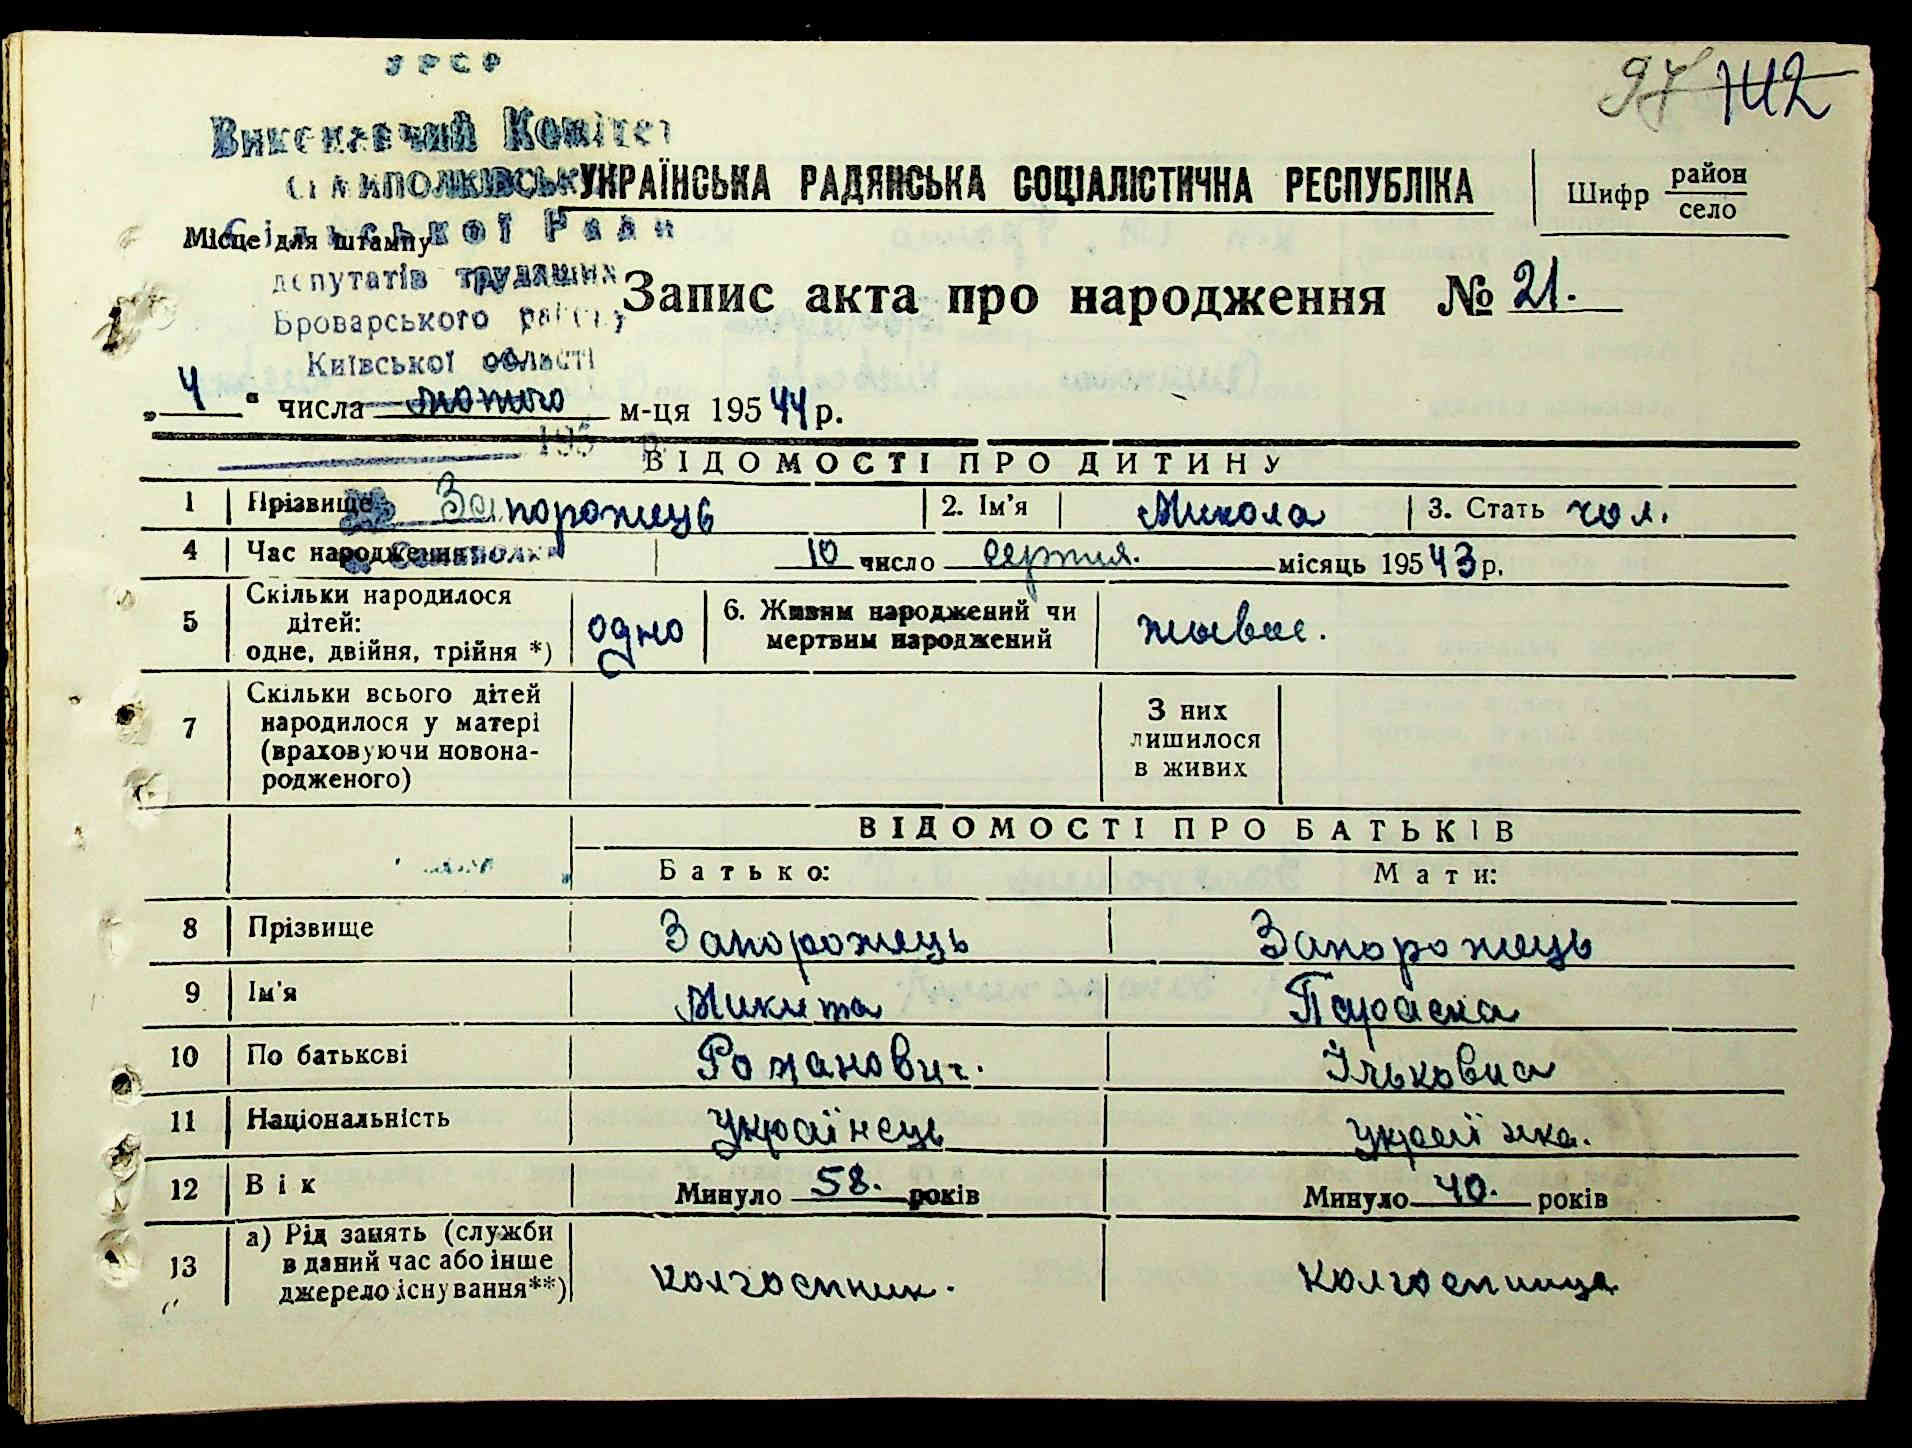 УРСР
97 142
Виконавчий Комітет
Семиполківської
УКРАЇНСЬКА РАДЯНСЬКА СОЦІАЛІСТИЧНА РЕСПУБЛІКА
Шифр район
село
Сільської Ради
Місце для штампу
депутатів трудящих
Запис акта про народження № 21.
Броварського району
Київської області
„4“ числа лютого м-ця 195 44 р.
195 р.
ВІДОМОСТІ ПРО ДИТИНУ
1 Прізвище Запорожець 2. Ім'я Микола 3. Стать чол.
4 Час народження 10 число серпня. місяць 195 43 р.
с. Семиполки
5 Скільки народилося дітей:
одне, двійня, трійня *) одно 6. Живим народжений чи
мертвим народжений живим.
7 Скільки всього дітей
народилося у матері
(враховуючи новона-
родженого)
З них
лишилося
в живих
ВІДОМОСТІ ПРО БАТЬКІВ
Батько: Мати:
8 Прізвище Запорожець Запорожець
9 Ім'я Микита Параска
10 По батькові Романович. Ільковна
11 Національність українець українка.
12 Вік Минуло 58. років Минуло 40. років
13 а) Рід занять (служби
в даний час або інше
джерело існування**) колгоспник. колгоспниця